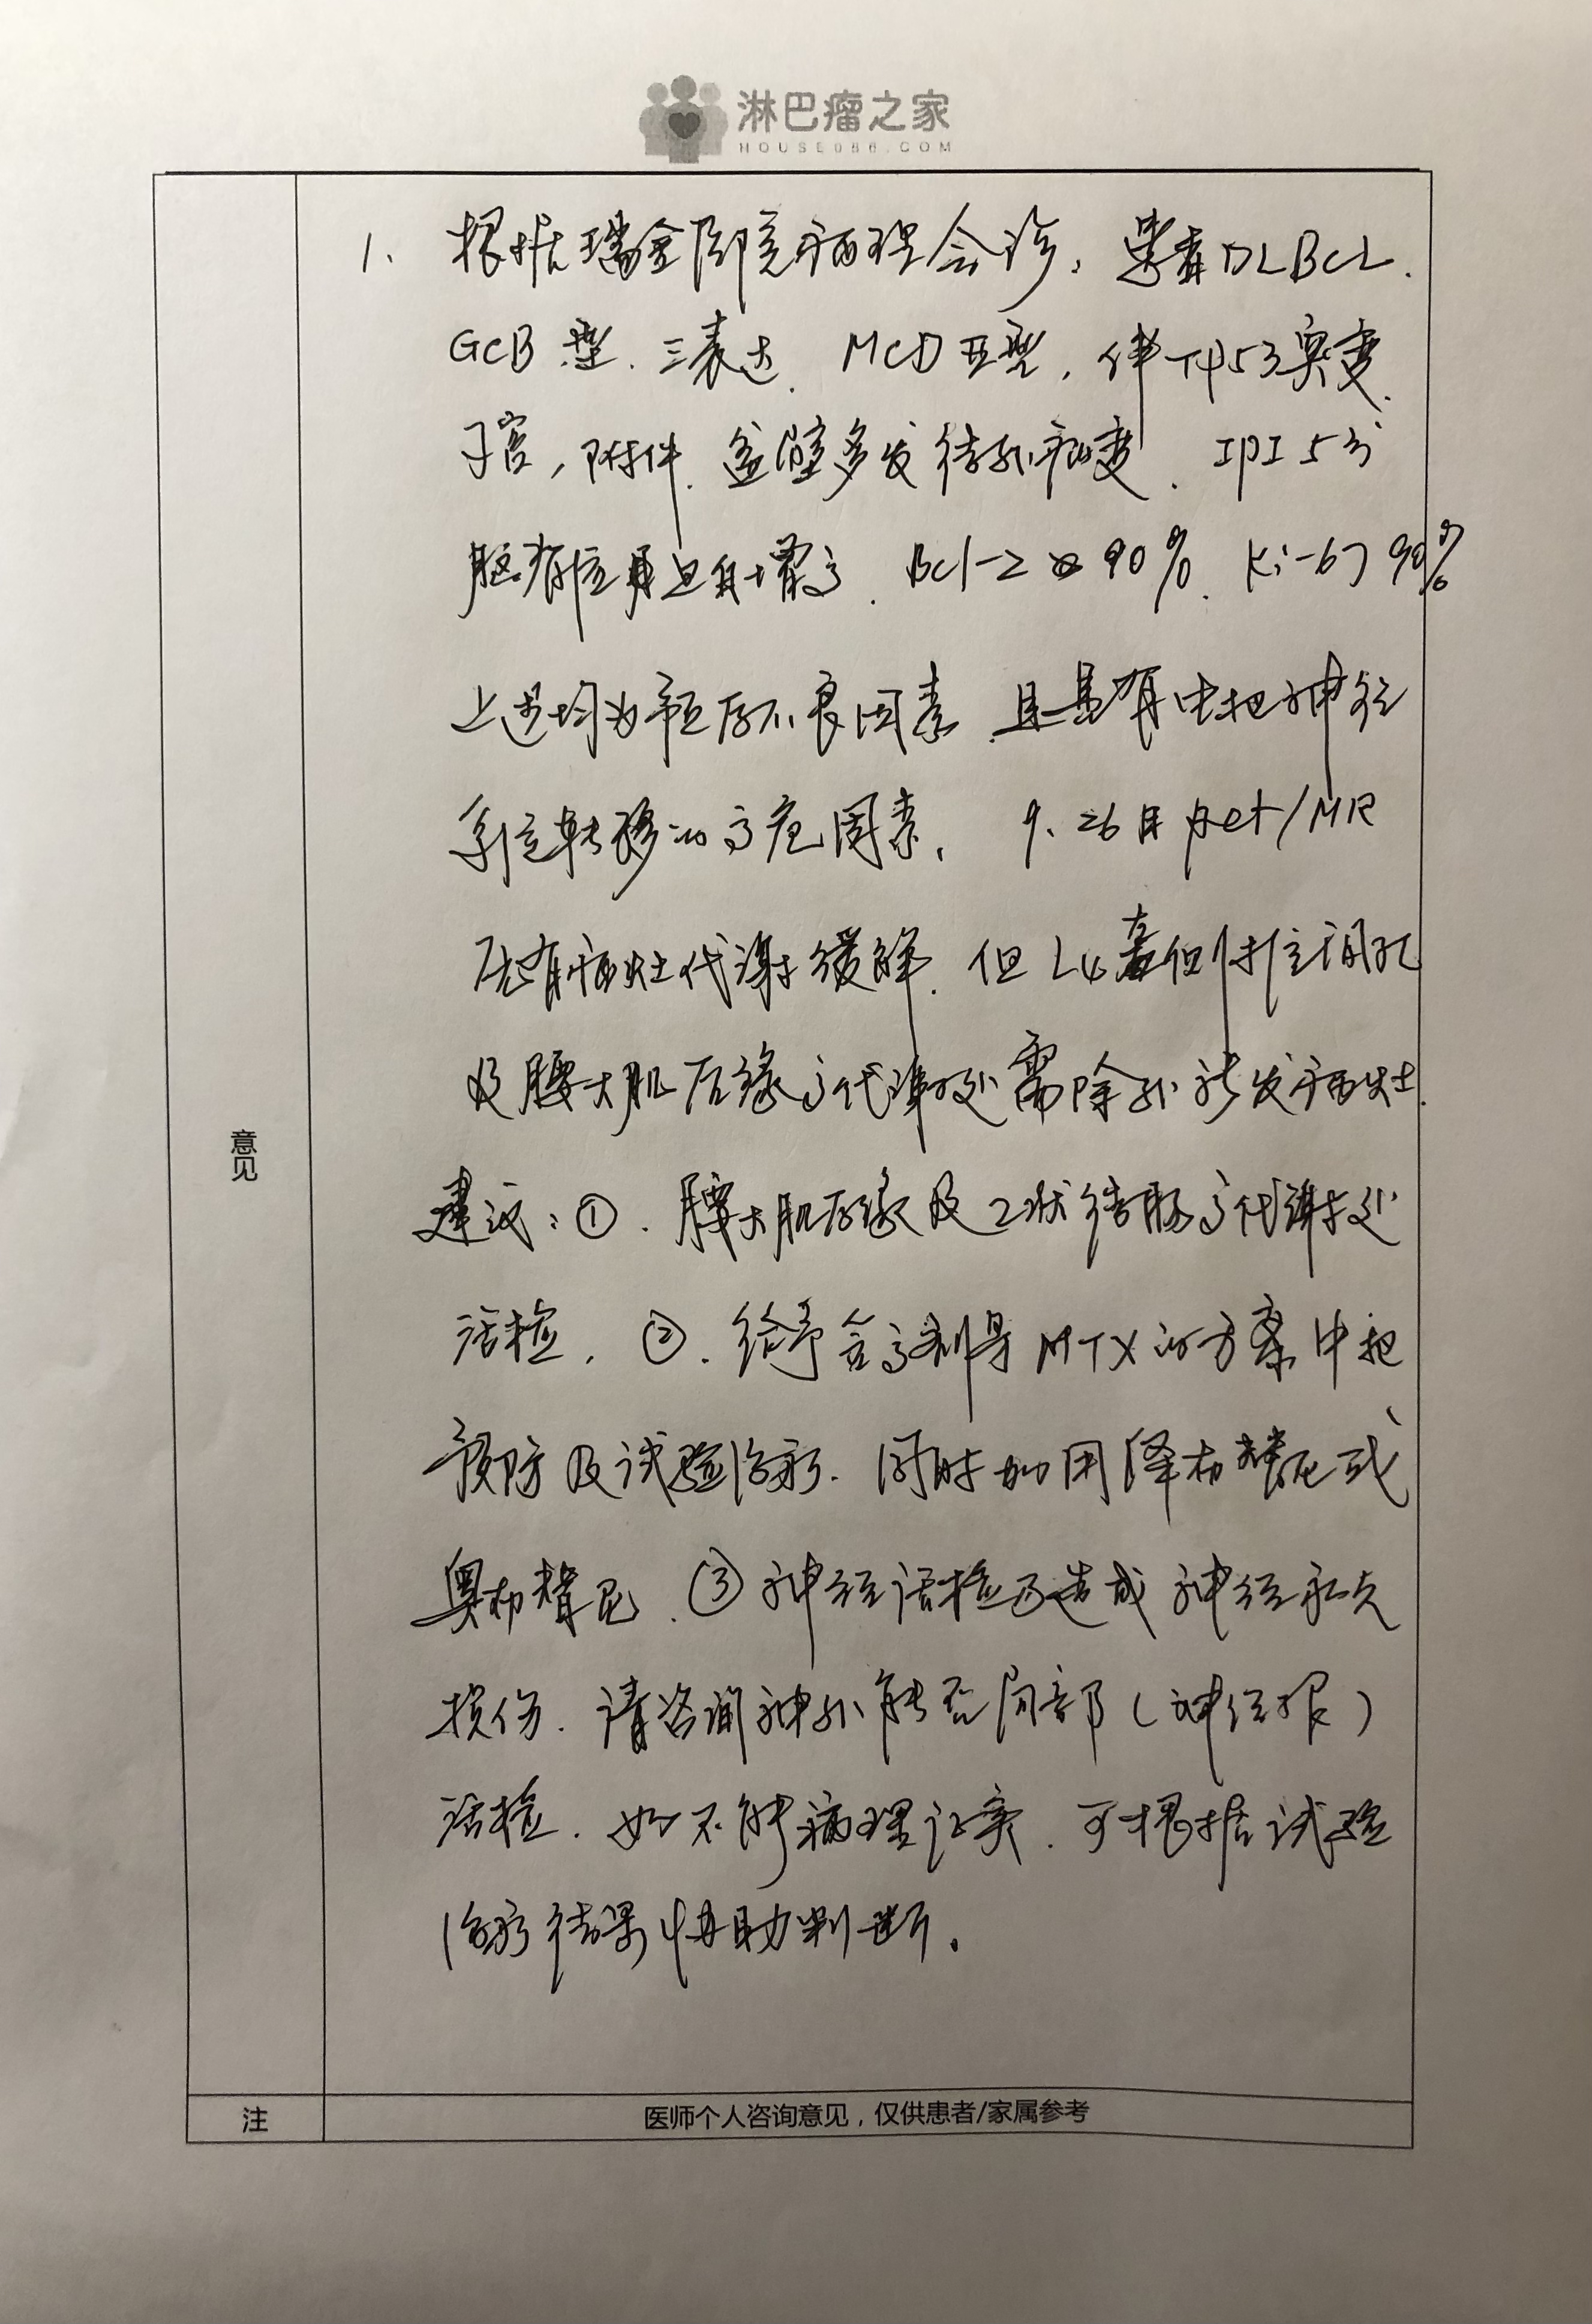 淋巴瘤之家
HOUSE086.COM
1. 根据瑞金医院病理会诊, 患者DLBCL.
GCB型. 三表达. MCD亚型, 伴TP53突变.
子宫, 附件. 盆壁多发结外病变. IPI 5分
脑脊液蛋白升高. Bcl-2 90%. Ki-67 90%
上述均为预后不良因素. 且具有中枢神经
系统转移的高危因素. 9.26日 pet/MR
原有病灶代谢缓解. 但L4 侧椎间孔
及腰大肌后缘高代谢处需除外新发病灶.
建议: ①. 腰大肌后缘及乙状结肠高代谢处
活检. ②. 给予含高剂量MTX的方案中枢
预防及试验治疗. 同时加用泽布替尼或
奥布替尼. ③神经活检可造成神经永久
损伤. 请咨询神外能否局部(神经根)
活检. 如不能病理证实. 可根据试验
治疗结果协助判断.
意见
注 医师个人咨询意见,仅供患者/家属参考